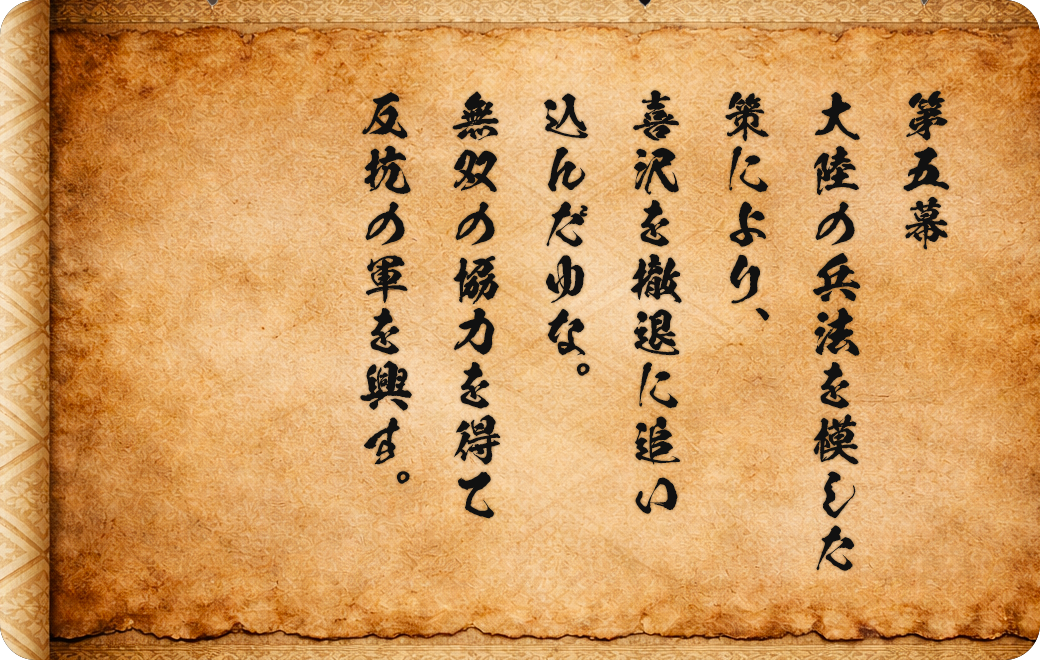 第五幕
大陸の兵法を模した
策により、
喜沢を撤退に追い
込んだゆな。
無双の協力を得て
反抗の軍を興す。